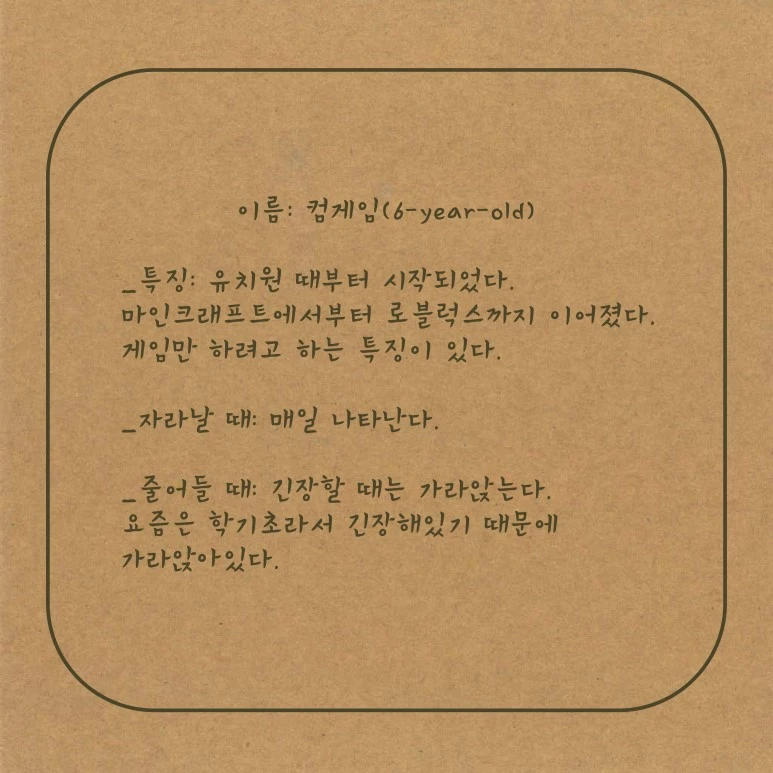 이름: 컴게임(6-year-old)
_특징: 유치원 때부터 시작되었다.
마인크래프트에서부터 로블럭스까지 이어졌다.
게임만 하려고 하는 특징이 있다.
_자라날 때: 매일 나타난다.
_줄어들 때: 긴장할 때는 가라앉는다.
요즘은 학기초라서 긴장해있기 때문에
가라앉아있다.